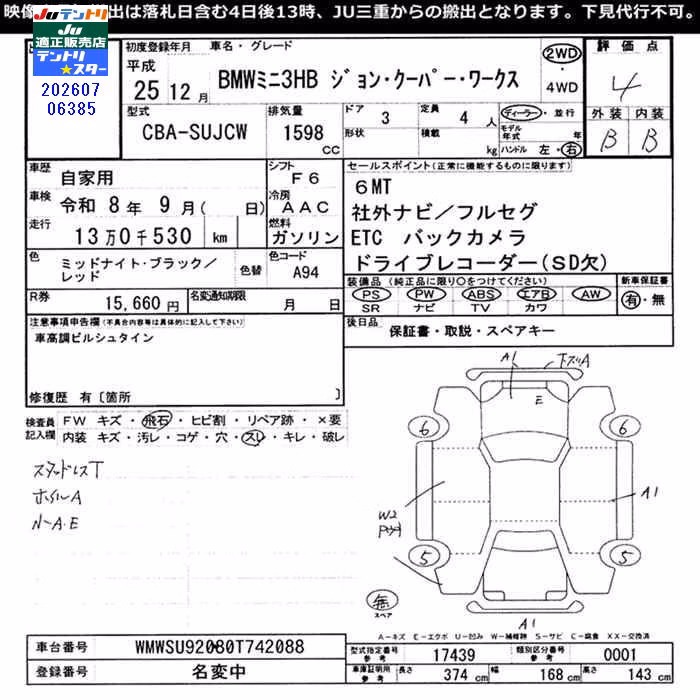 映像 出は落札日含む4日後13時、JU三重からの搬出となります。下見代行不可。
JUテントリ
JU
適正販売店
テントリ
スター
202607
06385
初度登録年月 車名・グレード
平成
25 12月
BMWミニ3HB ジョン・クーパー・ワークス
2WD
・
4WD
評価点
4
型式
CBA-SUJCW
排気量
1598
CC
ドア 3
形状
定員 4 人
積載 kg
ディーラー・並行
モデル年式 年
ハンドル 左・右
外装 内装
B B
車歴 自家用
シフト F6
車検 令和 8年 9月( 日)
冷房 AAC
走行 13万0千530 km
燃料 ガソリン
色 ミッドナイト・ブラック/レッド
色替
色コード A94
R券 15,660円
名変通知期限 月 日
セールスポイント(正常に機能するものに限ります)
6MT
社外ナビ/フルセグ
ETC バックカメラ
ドライブレコーダー(SD欠)
装備品(純正品に限り○をつけてください)
PS PW ABS エアB AW
SR ナビ TV カワ
新車保証書
有・無
後日品 保証書・取説・スペアキー
注意事項申告欄(不具合内容等は具体的に記入して下さい)
車高調ビルシュタイン
修復歴 有〔箇所 〕
検査員記入欄
FW キズ・飛石・ヒビ割・リペア跡・×要
内装 キズ・汚レ・コゲ・穴・スレ・キレ・破レ
スタッドレスT
ホイルA
ルーA.E
A1
下ズリA
E
6
6
W2
A1
5
5
無
スペア
A1
A−キズ E−エクボ U−凹み W−補修跡 S−サビ C−腐食 XX−交換済
車台番号 WMWSU92080T742088
登録番号 名変中
型式指定番号参考 17439
類別区分番号参考 0001
車庫証明用参考 長さ 374 cm 幅 168 cm 高さ 143 cm